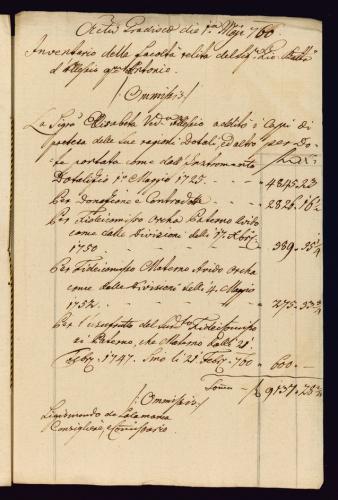 Actum Gradisca die 1ma Maji 760
Inventario della facoltà relita del Sigr Gio: Batta
d'Alessio qm Antonio.
/:Ommissis:/
La Sigra Elisabeta Vedva Alessio addita i Capi di
pretesa delle sue ragioni Dotali, ed altro per Do-
te portata come dal Instrumento
Dotale de 1mo Maggio 1725 - - - - 4845.23
Per Donatione e Contradote - - - 2826.16½
Per Fideicomisso Paterno
come dalle Divisioni delli 1mo
1750 - - - - 389.35¼
Per Fideicomisso Materno
come dalle Divisioni delli 4. Maggio
1752. - - - - 275.33¾
Per l'usufruto del Sudto Fideicomisso
sì Paterno, che Materno dalli 21
Febr. 1747. Sino li 21 Febr. 760 - 600.-
Soma - f 9137.28¾
/:Ommissis:/
Sigismondo de
Consigliere, e Comissario.